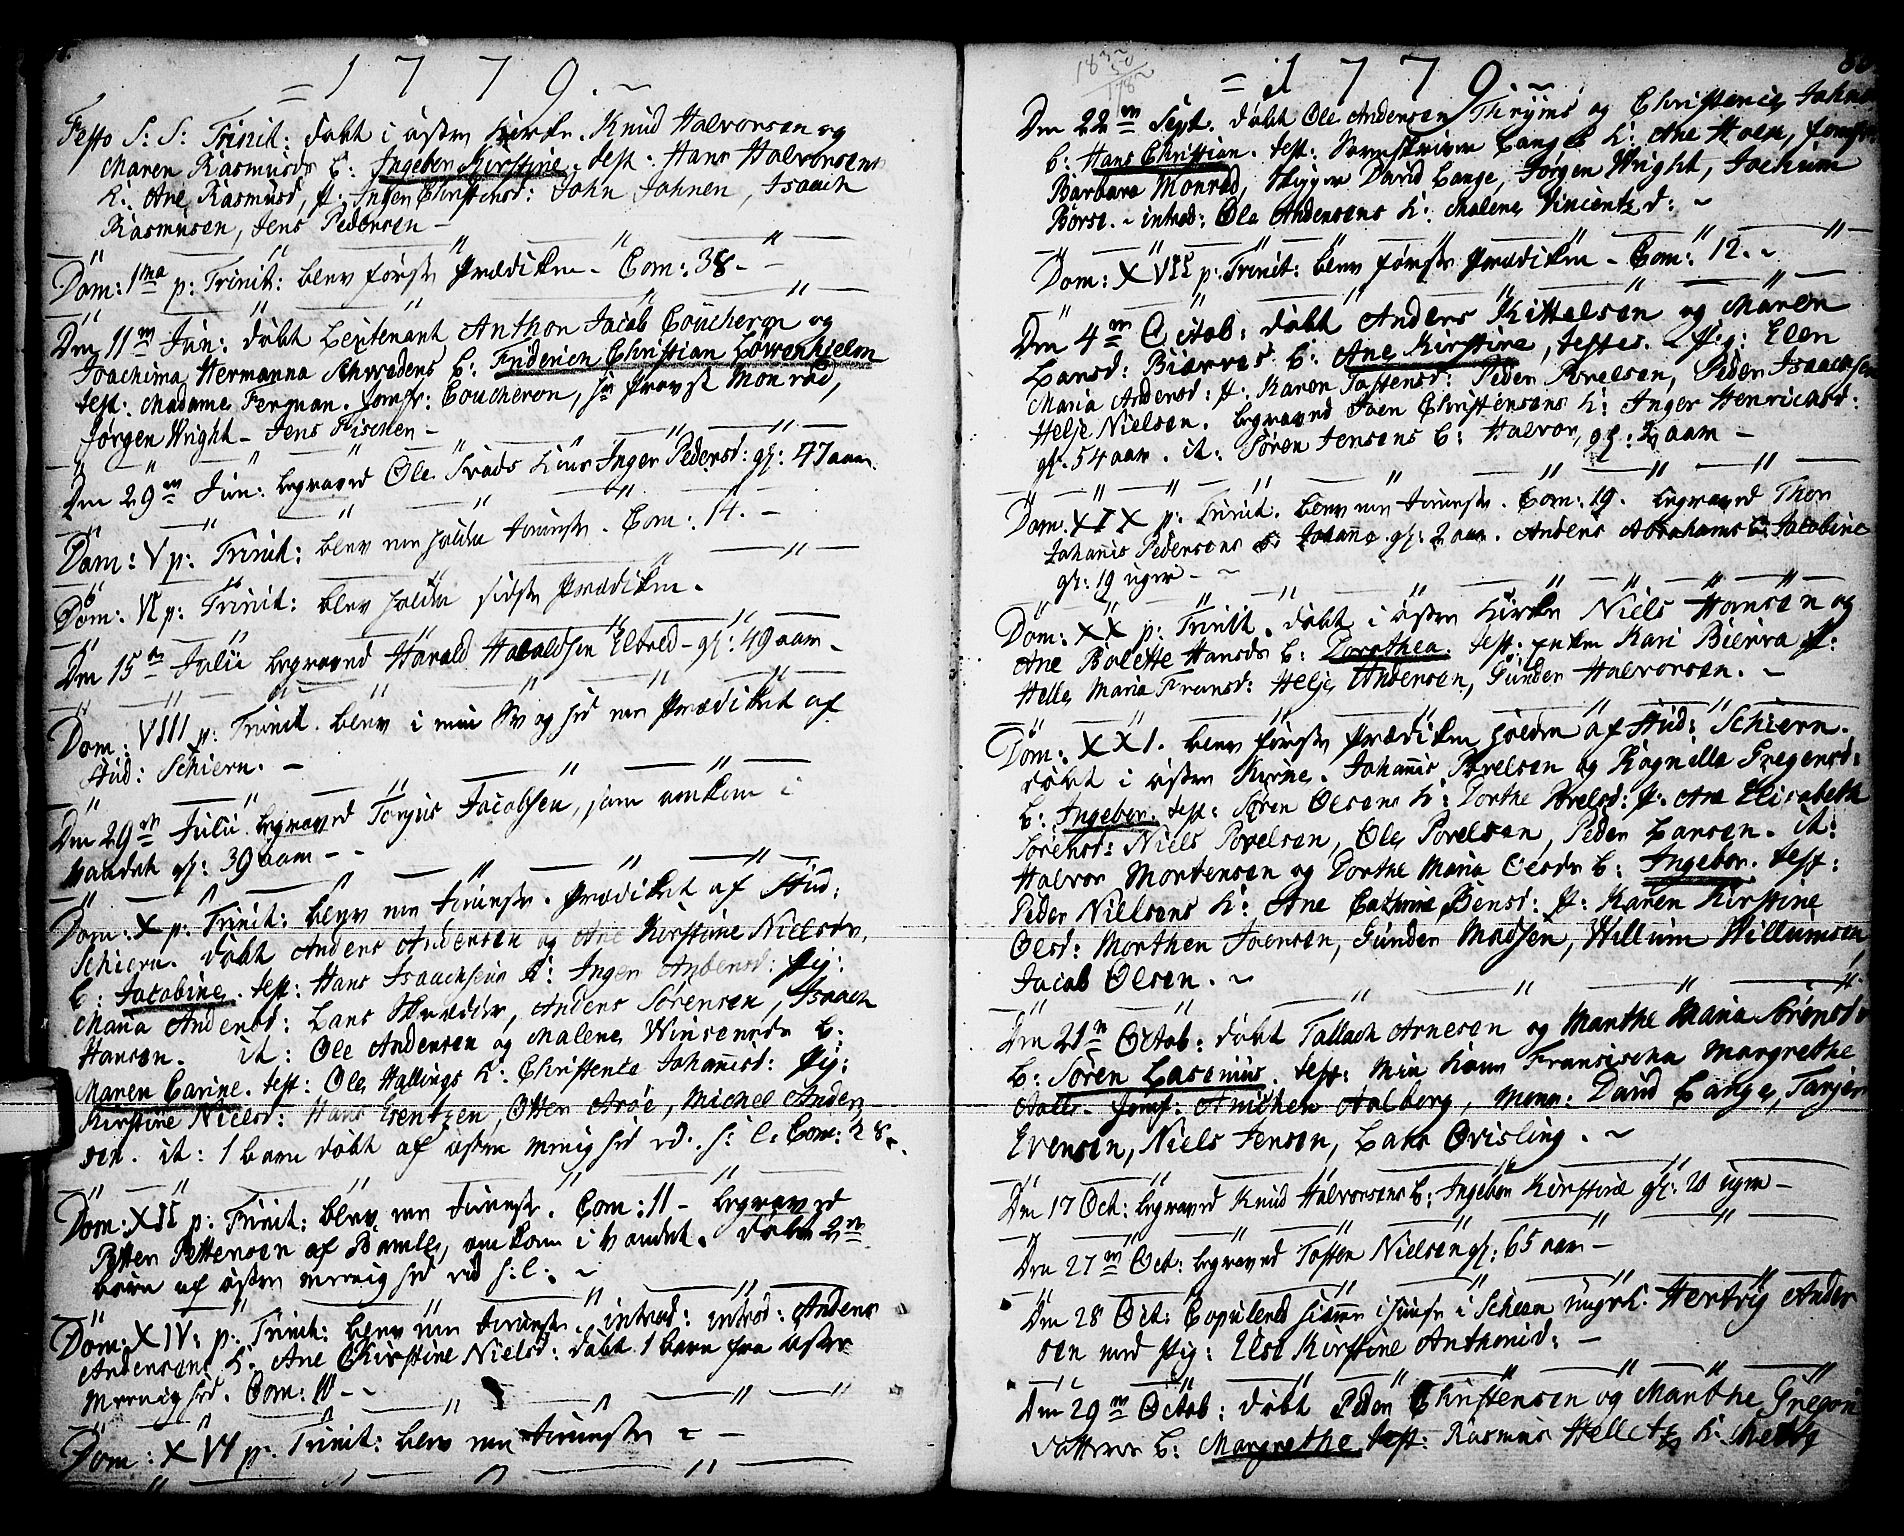 = 1 7 7 9. ~
Festo S: S: Trinit: døbt i østre Kirke. Knud Halvorsen og
Maren Rasmusds B: Ingebor Kirstine. test. Hans Halvorsens
K: Ane Rasmusd, p. Inger Christensd: John Johnen, Isaach
Rasmusen, Jens Pedersen -
Dom: 1ma p: Trinit: blev første Prædiken. Com: 38. -
Den 11m Jun: døbt Leutenant Anthon Jacob Coucheron og
Joachima Hermanna Schwedens B: Friderich Christian Løwenhielm
test: Madame Ferman. Jomfr: Coucheron, Hr Provst Monrad,
Jørgen Wright - Jens Fischer -
Den 29m Jun: begraved Ole Træds Kone Inger Pedersd: gl: 47 aar.
Dom: V p: Trinit: blev ren holden tieneste. Com: 14. -
Dom: VI p: Trinit: blev holden sidste Prædiken.
Den 15m Julii begraved Harald Haraldsen Elvled - gl: 49 aar -
Dom: VIII p: Trinit. blev i min Svaghed ren Prædiket af
Stud: Schiern. -
Den 29m Julii begraved Torjus Jacobsen, som omkom i
Vandet gl: 39 aar - -
Dom: X p: Trinit: blev ren tieneste. Prædiket af Stud:
Schiern. døbt Anders Andersen og Ane Kirstine Nielsdr,
B: Jacobine. test: Hans Isaachsens K: Inger Anbensd: pig:
Maria Andersd: Lars Skræder, Anders Sørensen, Isaach
Hansen. it: Ole Andersen og Malene Winsentsdr B:
Maren Carine. test: Ole Hallings K: Christense Johannisd: pig:
Kirstine Nielsd: Hans Gentzen, Otter Arøe, Michel Ander
sen. it: 1 barn døbt af østre Menighed ved. S: C: Com: 28.
Dom: XII p: Trinit: blev ren tieneste. Com: 11 - begraved
Petter Pettersen af Bamle, omkom i Vandet. døbt 2de
børn af østre Menighed ved S: C: ~
Dom: XIV: p: Trinit: blev ren tieneste. introd: introd: Anders
Andersens K: Ane Chirstine Nielsd: døbt 1 barn fra østre
Menighed. Com: 10 - -
Dom: XVI p: Trinit: blev ren tieneste - -
= 1 7 7 9. ~
Den 22m Sept. døbt Ole Andersen Tirims og Christence Johns
B: Hans Christian. test: Sorenskriver Langes K: Ane Hoen, Jomfr
Barbara Monrad, Skipper David Lange, Jørgen Wright, Jochum
Børse. - introd: Ole Andersens K: Malene Vincentz d: ~
Dom: XVII p: Trinit: blev første Prædiken - Com: 12. -
Den 4m Octob: døbt Anders Kittelsen og Maren
Larsd: Biørves B: Ane Kirstine, testes. Pig: Elen
Maria Andersd: p: Karen Tostensd: Peder Porelsen, Peder Isaachsen
Helje Nielsen. begraved Joen Christensens K: Inger Henrichsd:
gl. 54 aar. it: Søren Jensens B: Halvor, gl: 2 aar -
Dom. XIX p: Trinit. blev ren tieneste. Com: 19. begraved Thor
Johanis Pedersens B: Johanna gl: 2 aar. Anders Abrahams B: Jacobine
gl: 19 uger - ~
Dom: XX p: Trinit. døbt i østre Kirke Niels Hansen og
Ane Bolette Hansdr B: Dorothea. test: Enken Kari Bierva p:
Helle Maria Fransd: Helje Andersen, Gunder Halvorsen. ~
Dom: XXI. blev første Prædiken holden af Stud: Schiern.
døbt i østre Kirke. Johannis Porelsen og Ragnille Gregersd:
B: Ingebor. test: Søren Olsens K: Dorthe Porelsd: p: Ane Elisabeth
Sørensd: Niels Porelsen, Ole Porelsen, Peder Larsen. it:
Halvor Mortensen og Dorthe Maria Olsdr B: Ingebor. test:
Peder Nielsens K: Ane Cathrine Bensd: p: Karen Kirstine
Olsd: Morthen Joensen, Gunder Madsen, Willum Willumsen,
Jacob Olsen. ~
Den 21m Octob: døbt Tallach Arnesen og Marthe Maria Sørensdr
B: Søren Lasenius. test: Min Kone Fransischa Margrethe
Aalls. Jomf: Anichen Aalborg, Mons: David Lange, Tarjer
Evensen, Niels Jensen, Lars Qvisling. ~
Den 17 Oct: begraved Knud Halvorsens B: Ingebor Kirstine gl: 20 uger -
Den 27m Oct: begraved Tosten Nielsen gl: 65 aar -
Den 28 Oct: Copulered hiemme i huuse i Scheen ungk. Hertvig Ander
sen med Pig: Else Kirstine Anthonid: -
Den 29m Octob: døbt Peder Christensen og Marthe Gregori
datters B: Margrethe test: Rasmus Helletz K: Mette